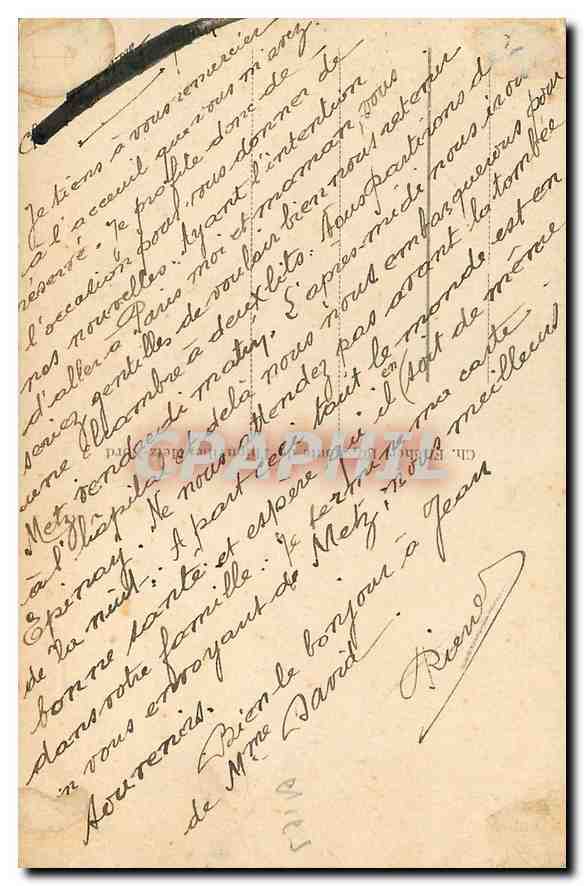 Je tiens à vous remercier
à l'acceuil que vous m'avez
reservé. Je profite donc de
l'occation pour vous donner de
nes nouvelles. Ayant l'intention
d'aller à Paris moi et maman, vous
seriez gentilles de vouloir bien nous retenir
une chambre à deux lits. Nous partirons d
Metz vendredi matin. L'après-midi nous irons
à l'hôpital et delà nous nous embarquerons pour
Epinay. Ne nous attendez pas avant la tombée
de la nuit. A part ceci tout le monde est en
bonne santé et espère qu'il en soit de même
dans votre famille. Je termine ma carte
n vous envoyant de Metz, nos meilleurs
souvenirs.
Bien le bonjour à Jean
de Mme David
Pierre
CPAPHIL